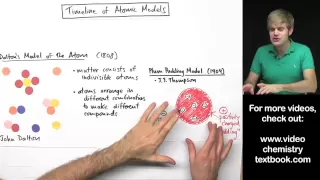 Timeline of Atomic Models
Dalton's Model of the Atom (1808)
• matter consists of
indivisible atoms
• atoms arrange in
different combinations
to make different
compounds
John Dalton
Plum Pudding Model (1904)
- J.J. Thompson
+
positively
charged
"pudding"
For more videos,
check out:
www.video
chemistry
textbook.com